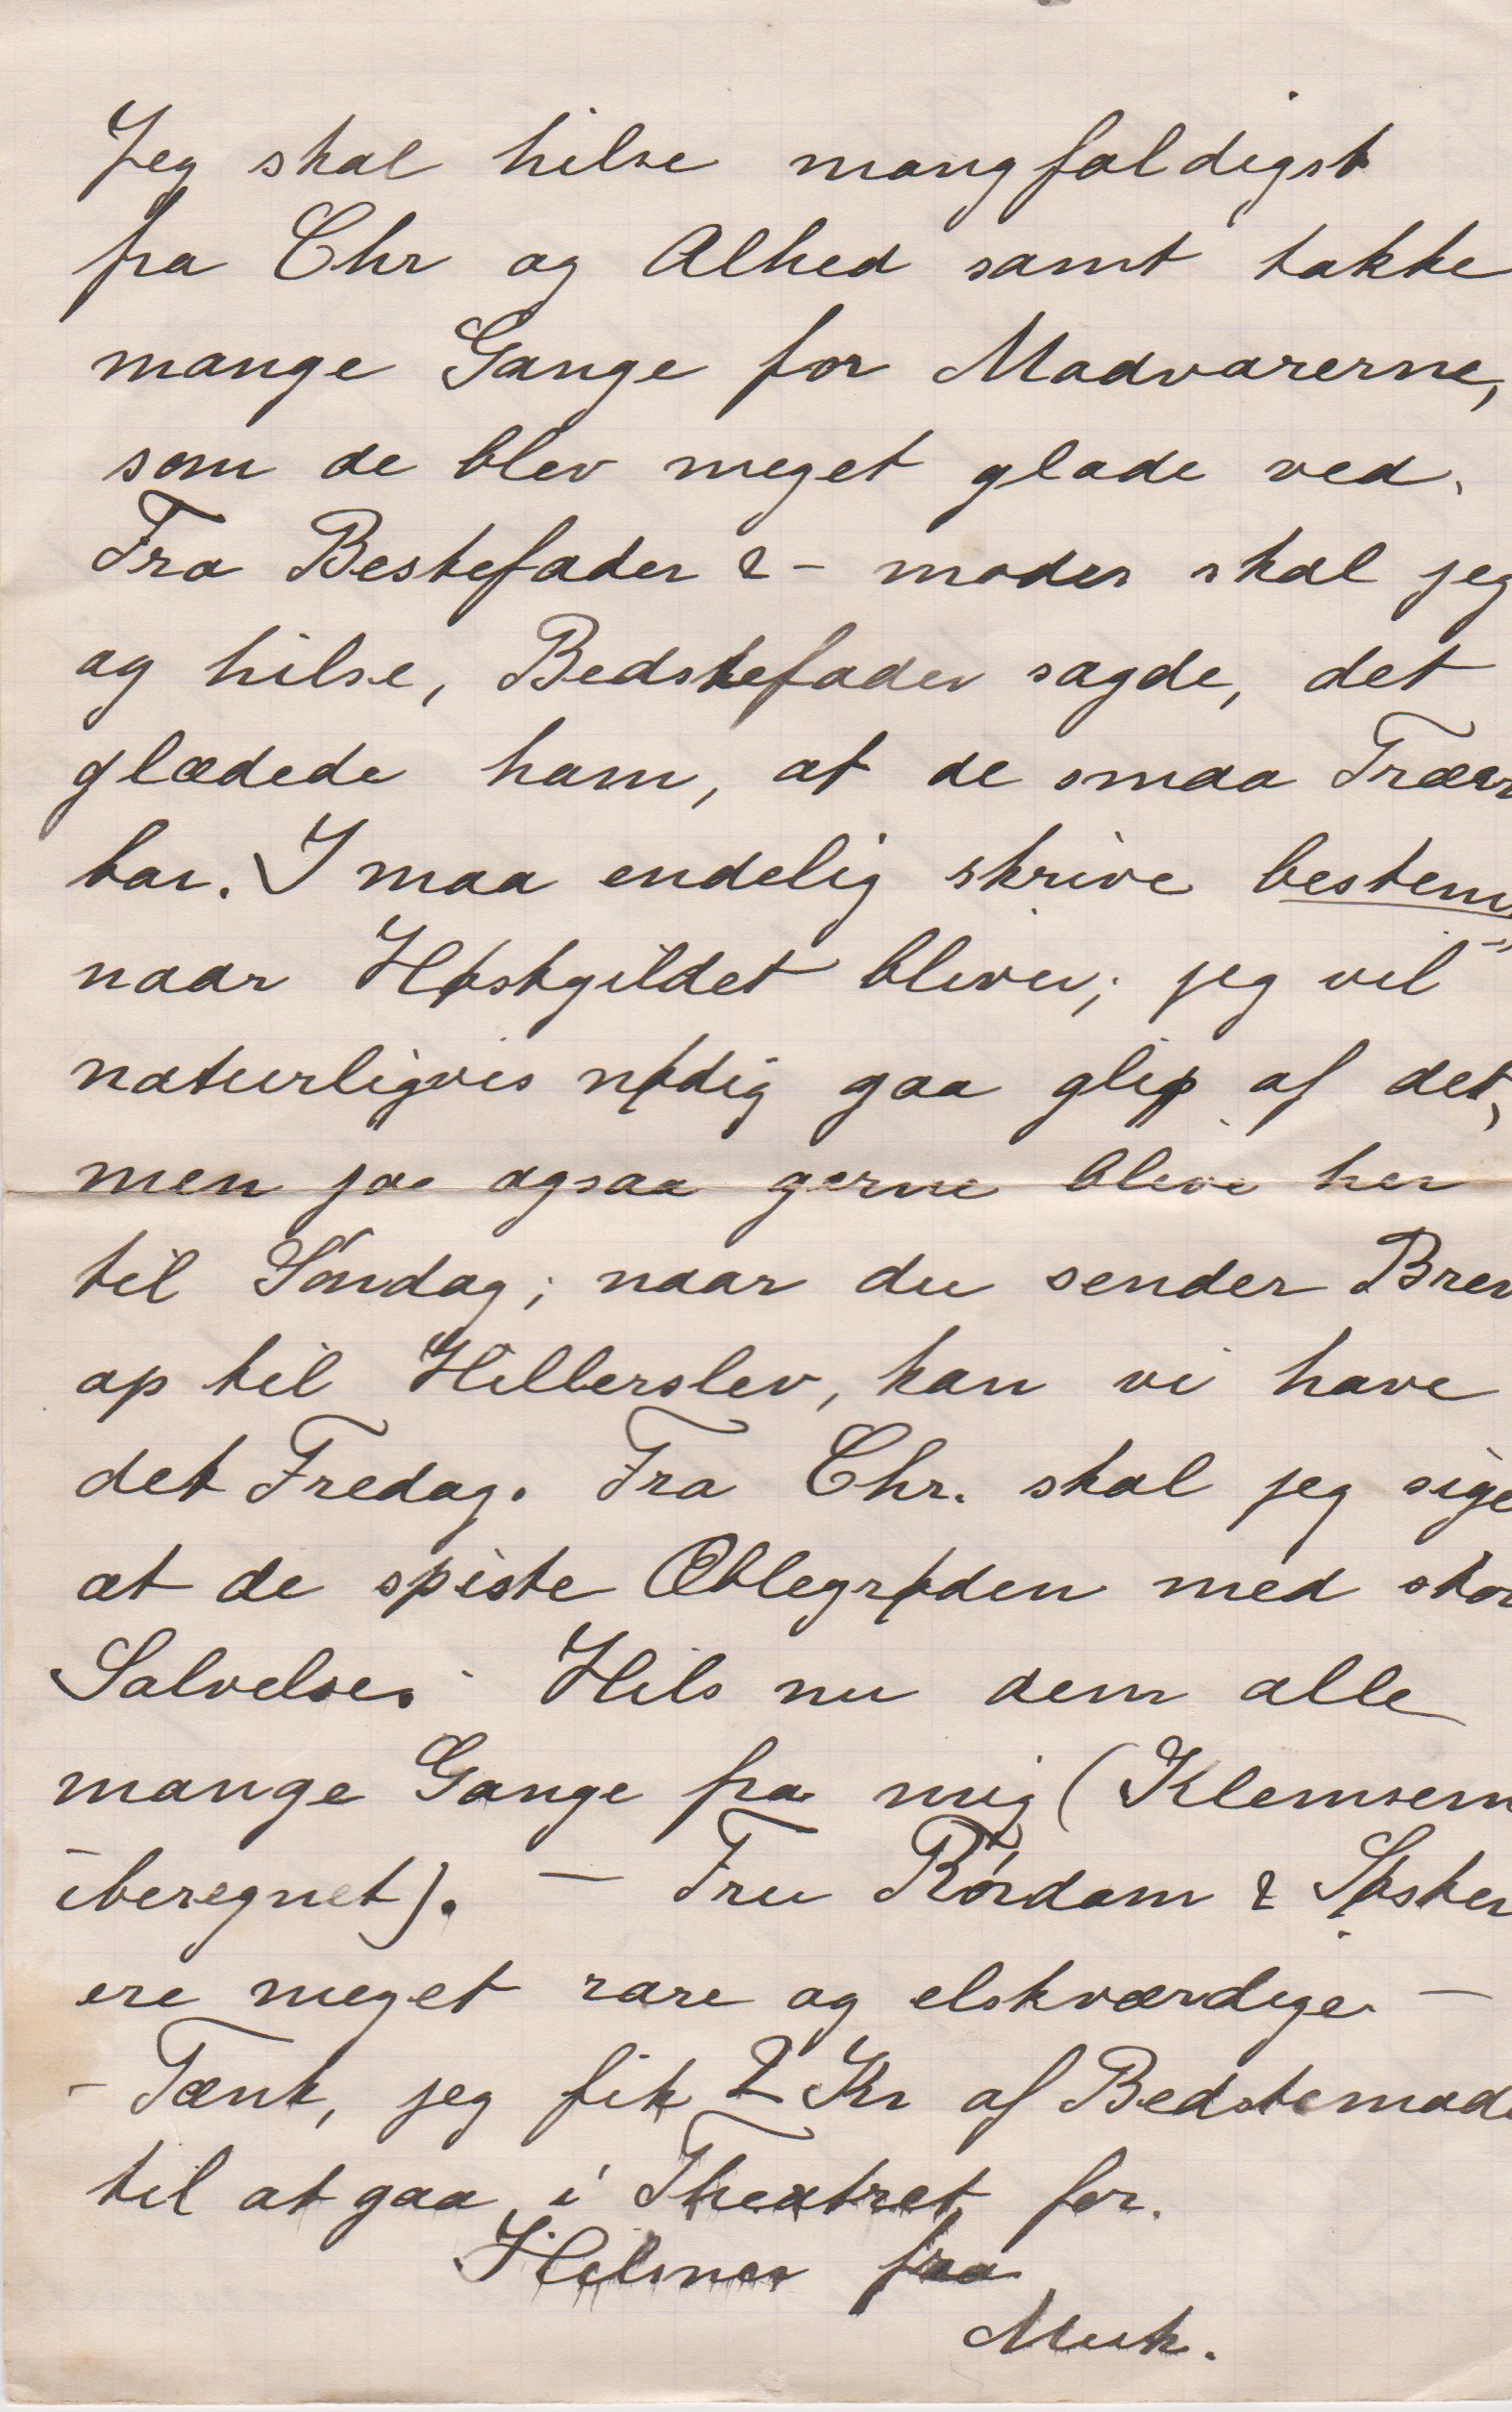 Jeg skal hilse mangfoldigst
fra Chr og Alhed samt takke
mange Gange for Madvarerne,
som de blev meget glade ved.
Fra Bestefader & - moder skal jeg
og hilse, Bedstefader sagde, det
glædede ham, at de smaa Træer
bar. I maa endelig skrive bestem
naar Høstgildet bliver; jeg vil
naturligvis nødig gaa glip af det,
men jo ogsaa gerne blive her
til Søndag; naar du sender Brev
op til Hillerslev, kan vi have
det Fredag. Fra Chr. skal jeg sige
at de spiste Æblegrøden med stor
Salvelse. Hils nu dem alle
mange Gange fra mig (Klemsem
iberegnet). - Fru Rørdam & Søster
ere meget rare og elskværdige -
- Tænk, jeg fik 2 Kr af Bedstemode
til at gaa i Theatret for.
Hilsner fra
Muk.